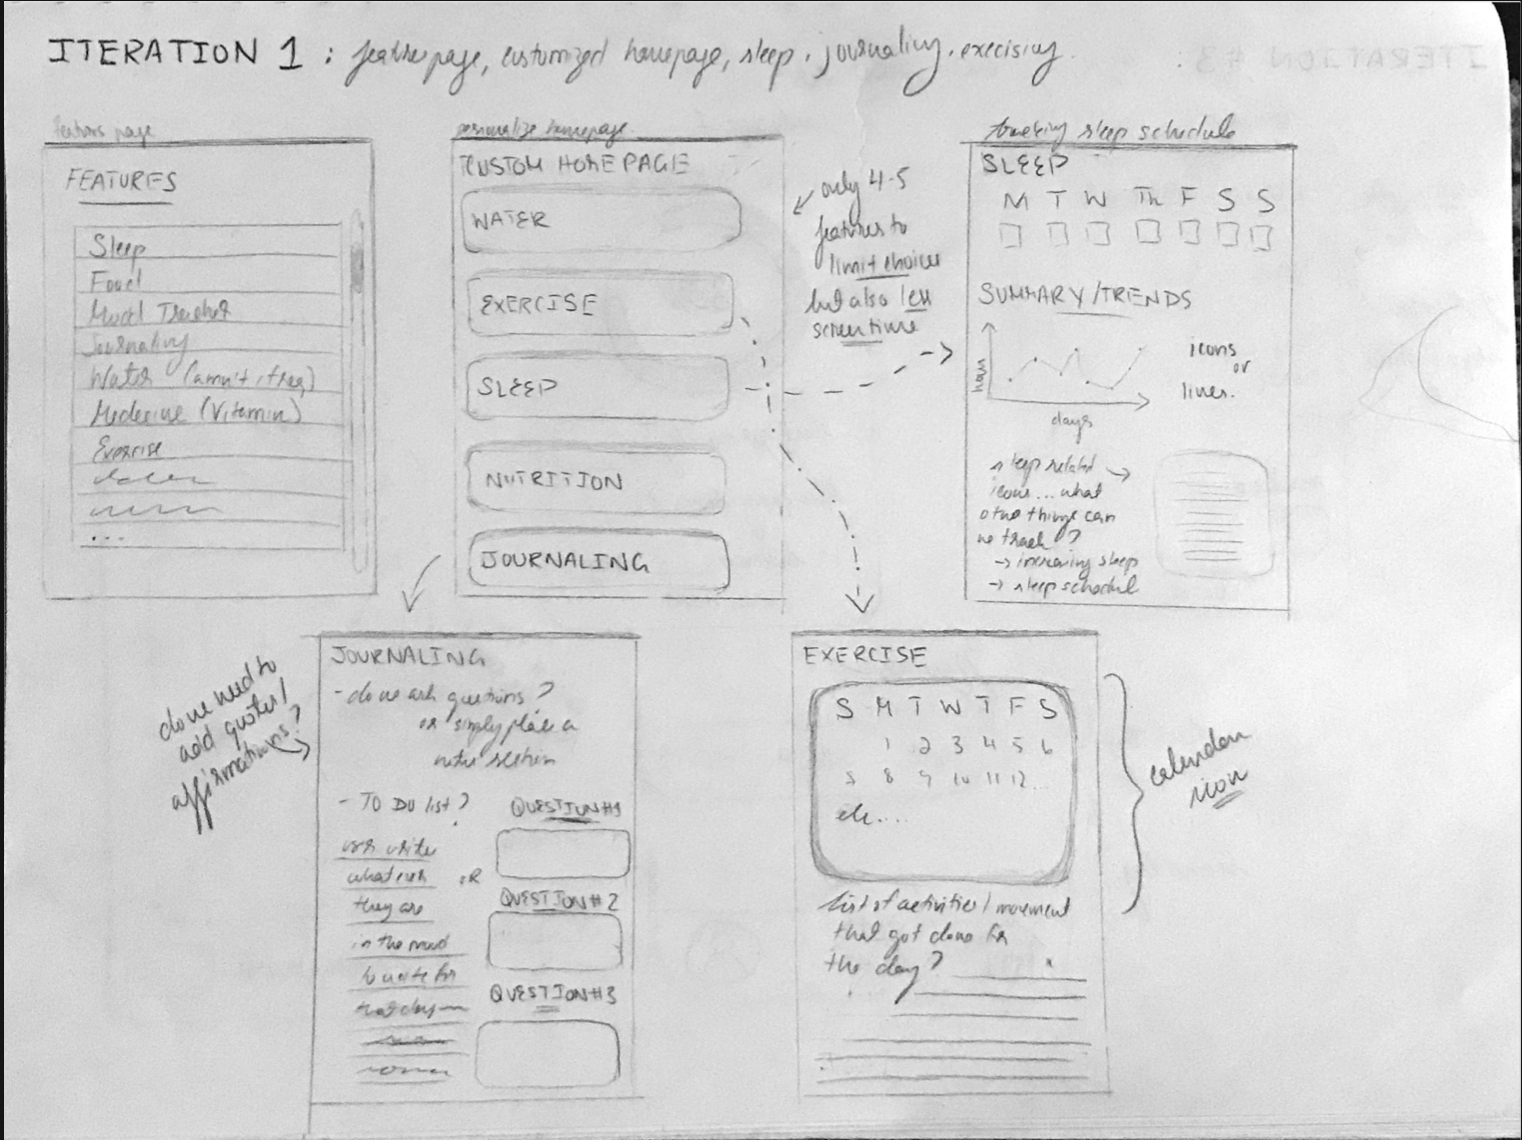 ITERATION 1 : feature page, customized homepage, sleep, journaling, execising.
ITERATION #3 :
features page
FEATURES
Sleep
Food
Mood Tracker
Journaling
Water (amnt, freq)
Medecine (Vitamin)
Exercise
...
personalize homepage
CUSTOM HOMEPAGE
WATER
EXERCISE
SLEEP
NUTRITION
JOURNALING
only 4-5
features to
limit choice
but also less
screentime
tracking sleep schedule
SLEEP
M T W Th F S S
SUMMARY/TRENDS
hours
days
icons
or
lines.
sleep related
icons... what
other things can
we track?
→ increasing sleep
→ sleep schedul
do we need to
add quotes/
affirmations?
JOURNALING
- do we ask questions?
or simply place a
notes section
- TO DO list?
usr write
whatever
they are
in the mood
to write for
that day
OR
QUESTION #1
QUESTION #2
QUESTION #3
EXERCISE
S M T W T F S
1 2 3 4 5 6
8 9 10 11 12...
etc....
calendar
icon
list of activities/movement
that got done for
the day?